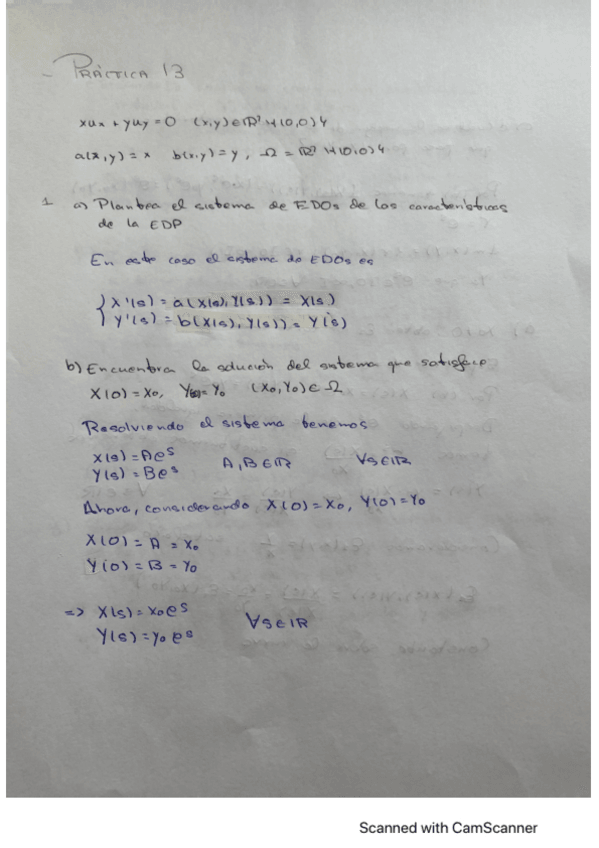 - PRÁCTICA 13
xux + yuy = 0 (x,y) ∈ ℝ² \ {(0,0)}
a(x,y) = x b(x,y) = y, Ω = ℝ² \ {(0,0)}
1 a) Plantea el sistema de EDOs de las características
de la EDP
En este caso el sistema de EDOs es
{ X'(s) = a(X(s), Y(s)) = X(s)
Y'(s) = b(X(s), Y(s)) = Y(s)
b) Encuentra la solución del sistema que satisface
X(0) = X₀, Y(0) = Y₀ (X₀, Y₀) ∈ Ω
Resolviendo el sistema tenemos
X(s) = Aeˢ
Y(s) = Beˢ A, B ∈ ℝ ∀s ∈ ℝ
Ahora, considerando X(0) = X₀, Y(0) = Y₀
X(0) = A = X₀
Y(0) = B = Y₀
=> X(s) = X₀eˢ
Y(s) = Y₀eˢ ∀s ∈ ℝ
Scanned with CamScanner